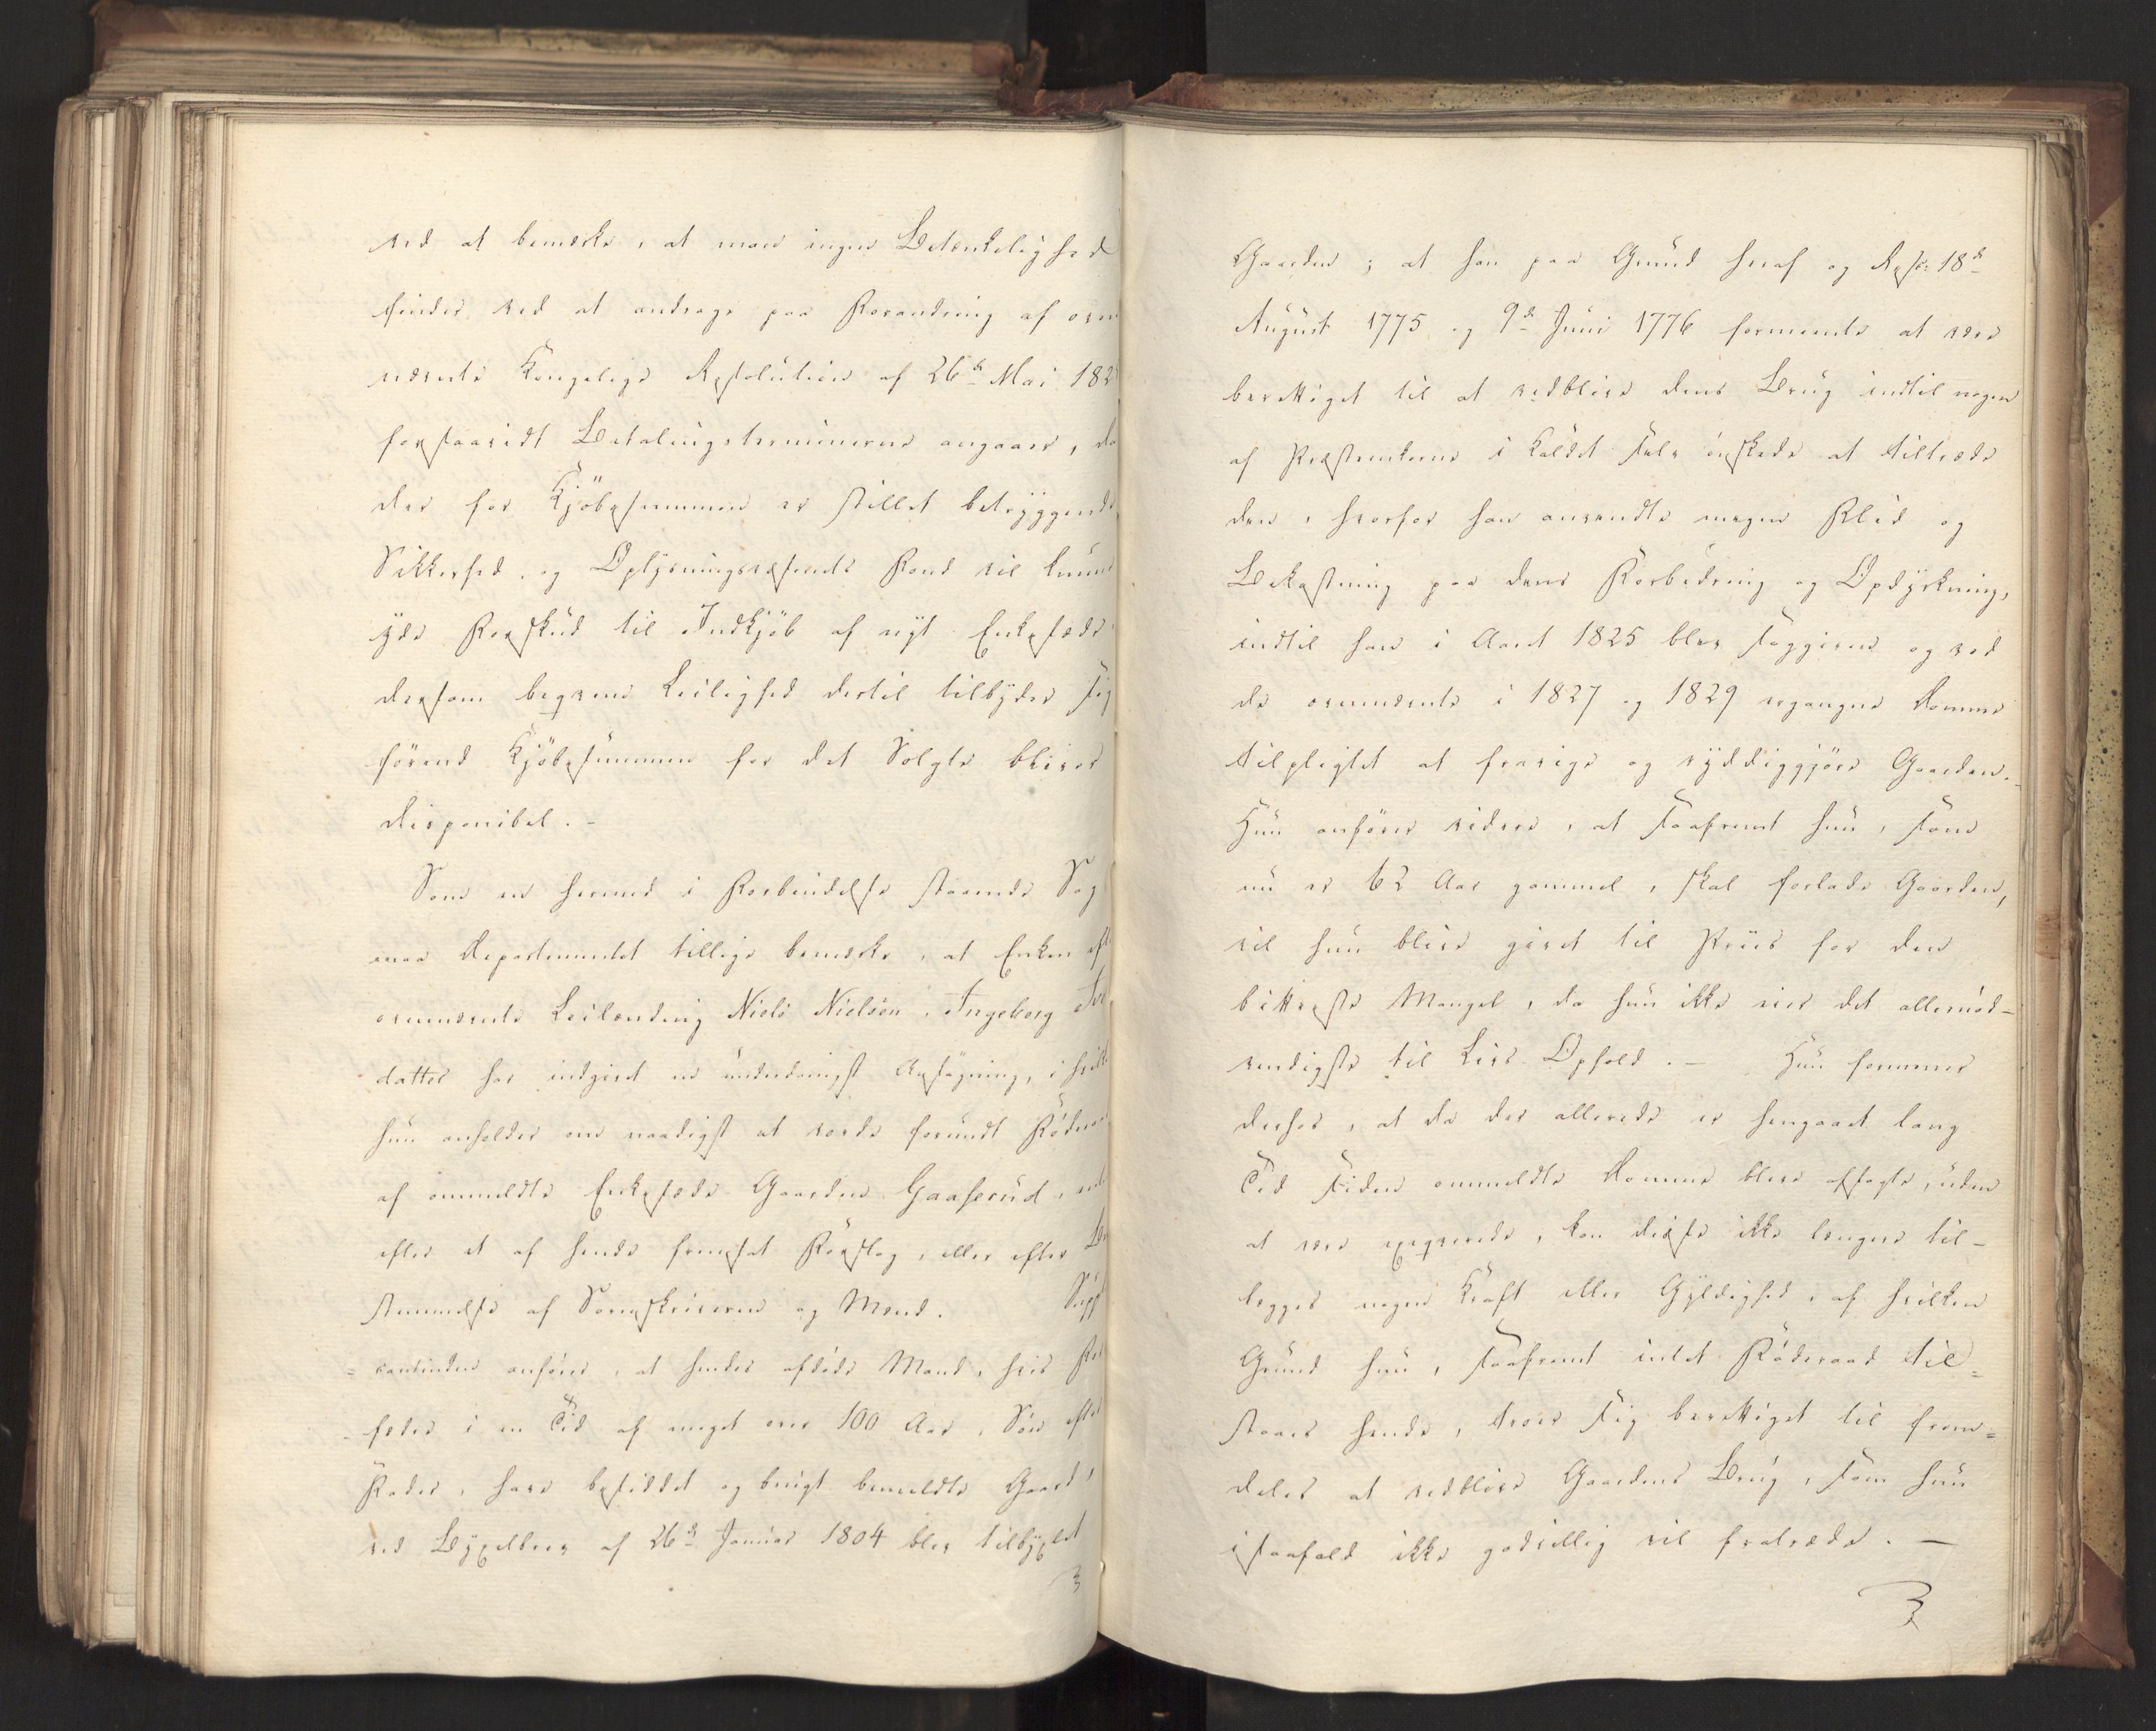 ved at bemærke, at man ingen Betænkelighed
finder ved at andrage paa Forandring af oven
nævnte Kongelige Resolution af 26de Mai 182
forsaavidt Betalingsterminerne angaaer, da
der for Kjöbesummen er stillet betryggende
Sikkerhed, og Oplysningsvæsenets Fond vil kunne
yde Forskud til Indkjöb af nyt Enkesæde
dersom beqvem Leilighed dertil tilbyder sig
förend Kjöbesummen for det Solgte bliver
disponibel. -
Som en hermed i Forbindelse staaende Sag
maa Departementet tillige bemærke, at Enken eft
ovennævnte Leilænding Niels Nielsen, Ingeborg
datter har indgivet en underdanigst Ansögning, i hvilk
hun anholder om naadigst at vorde forundt
af ommeldte Enkesæde Gaarden Gaaserud, enten
efter et af hende fremsat Forslag, eller efter Be
stemmelse af Sorenskriveren og Mænd. Supp
=cantinden anförer, at hendes afdöde Mand, hvis For
fædre i en Tid af meget over 100 Aar, Sön efter
Fader, have besiddet og brugt bemeldte Gaard,
ved Byxelbrev af 26de Januar 1804 blev tilbyxlet
Gaarden; at han paa Grund heraf og Rescr: 18de
August 1775 og 9de Juni 1776 formeente at være
berettiget til at vedblive dens Brug indtil nogen
af Præsteenkerne i Kaldet selv önskede at tiltræde
den, hvorfor han anvendte megen Flid og
Bekostning paa dens Forbedring og Opdyrkning,
indtil han i Aaret 1825 blev sögt og ved
de ovennævnte i 1827 og 1829 ergangne Domme
tilpligtet at fravige og ryddiggjöre Gaarden. -
Hun anförer videre, at saafremt hun, som
nu er 62 Aar gammel, skal forlade Gaarden,
vil hun blive givet til Priis for den
bittreste Mangel, da hun ikke eier det allernöd-
vendigste til Livs Ophold. - Hun formener
derhos, at da der allerede er hengaaet lang
Tid siden ommeldte Domme bleve afsagte, uden
at være exeqverede, kan disse ikke længere til-
lægges nogen Kraft eller Gyldighed, af hvilken
Grund hun, saafremt intet Föderaad til=
staaes hende, troer sig berettiget til frem=
deles at vedblive Gaardens Brug, som hun
isaafald ikke godvillig vil fratræde. -